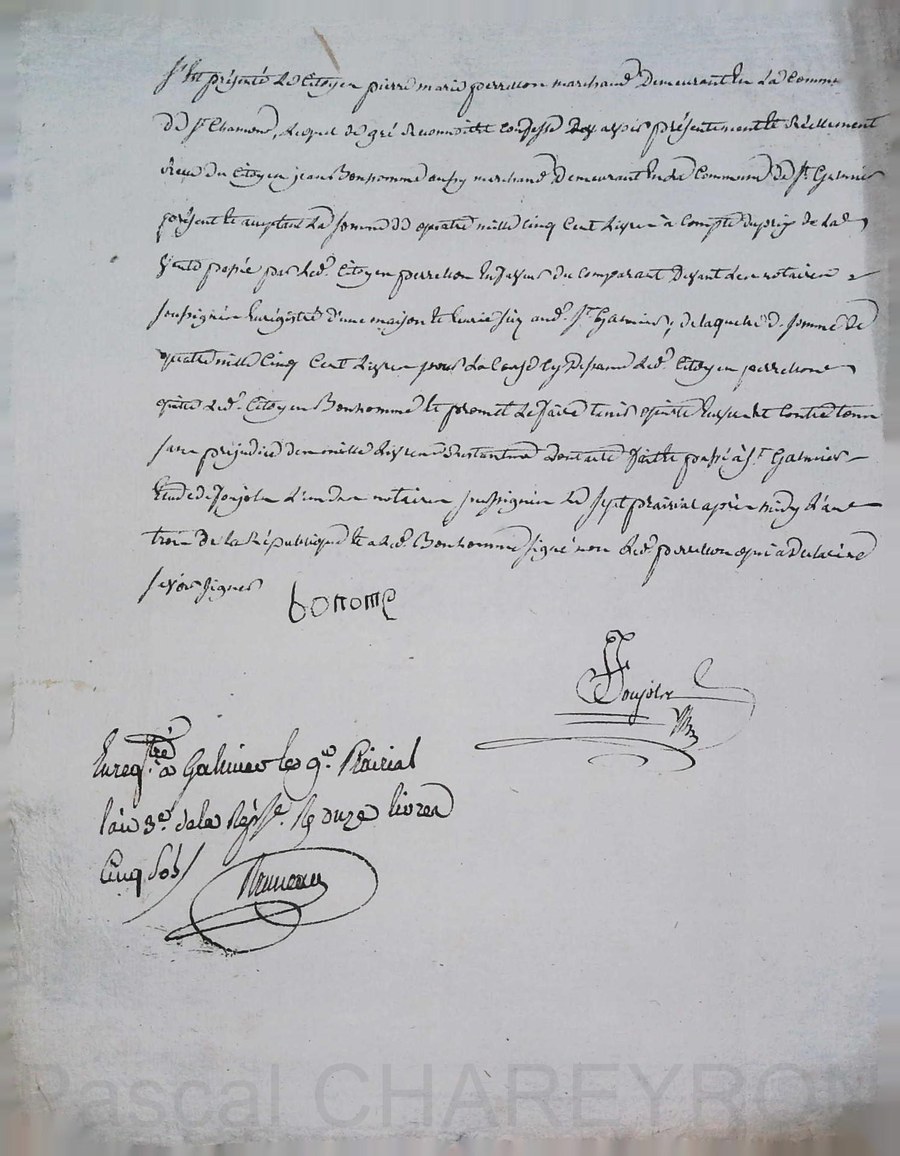 S'est présenté le Citoyen pierre marie perrellon marchand Demeurant En La Comme
De St Chamond, Lequel de gré Reconnoit et Confesse avoir présentement et Réellement
Receu du Citoyen jean Bonhomme aussy marchand Demeurant En La Commune de St Galmier
présent et acceptant La somme de quatre mille Cinq Cent Livres à Compte du prix de La
Vente passée par led. Citoyen perrellon En faveur du Comparant Devant Les notaires
soussignés Enregistré d'une maison et sise aud. St Galmier, de laquelle d. somme de
quatre mille Cinq Cent Livres pour La Cause Cy Dessus led. Citoyen perrellon
quitte led. Citoyen Bonhomme et promet Le faire tenir quitte Envers et Contre tous
sans préjudice de mille Livres Dont acte fait et passé à St Galmier
Etude de Joujole L'un des notaires soussignés Le sept prairial après midy L'an
trois de la République et a led. Bonhomme signé non led. perrellon qui a Déclaré
scavoir signer
bonome
Joujole
Enregtré à Galmier le 9e. Prairial
l'an 3e. de la Répe. R onze livres
Cinq Sols
Bruneau
Pascal CHAREYRON